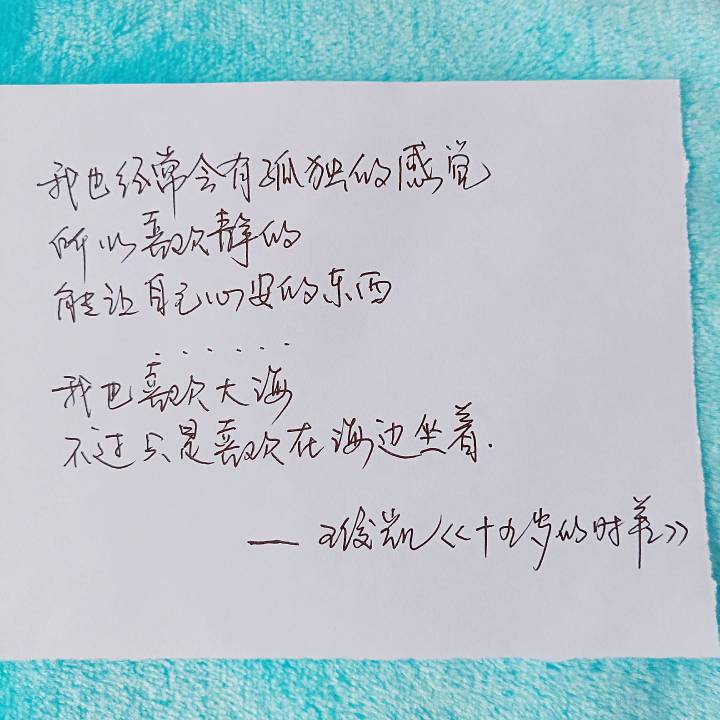 我也经常会有孤独的感觉
所以喜欢静的
能让自己心安的东西
......
我也喜欢大海
不过只是喜欢在海边坐着.
— 王俊凯《十九岁的时差》